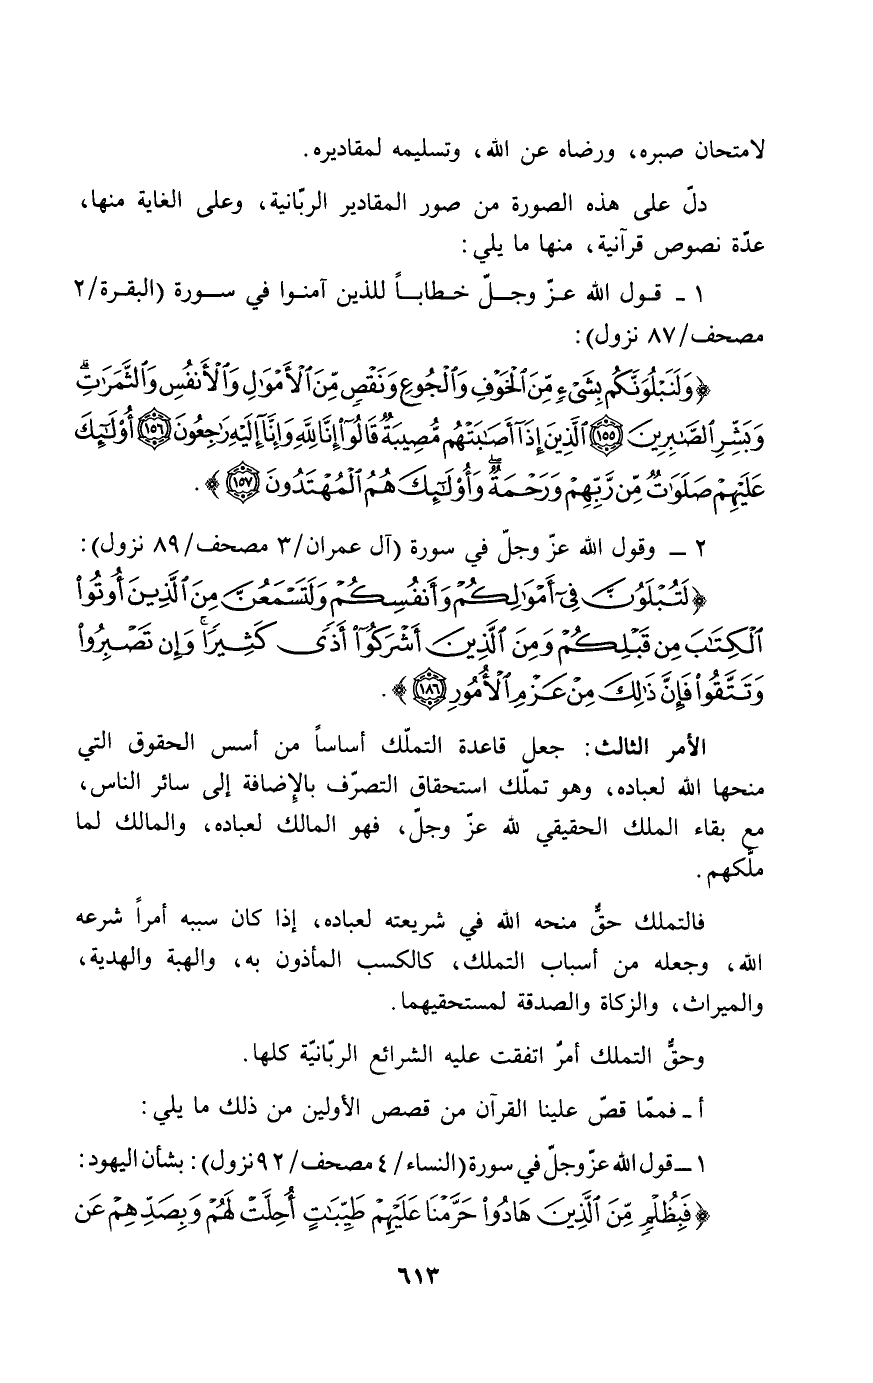 لامتحان صبره، ورضاه عن الله، وتسليمه لمقاديره.
دلّ على هذه الصورة من صور المقادير الربّانية، وعلى الغاية منها،
عدّة نصوص قرآنية، منها ما يلي:
١ - قول الله عزّ وجلّ خطاباً للذين آمنوا في سورة (البقرة/٢
مصحف/٨٧ نزول):
﴿وَلَنَبْلُوَنَّكُم بِشَىْءٍ مِّنَ ٱلْخَوْفِ وَٱلْجُوعِ وَنَقْصٍ مِّنَ ٱلْأَمْوَٰلِ وَٱلْأَنفُسِ وَٱلثَّمَرَٰتِ ۗ
وَبَشِّرِ ٱلصَّٰبِرِينَ ١٥٥ ٱلَّذِينَ إِذَآ أَصَٰبَتْهُم مُّصِيبَةٌ قَالُوٓا۟ إِنَّا لِلَّهِ وَإِنَّآ إِلَيْهِ رَٰجِعُونَ ١٥٦ أُو۟لَٰٓئِكَ
عَلَيْهِمْ صَلَوَٰتٌ مِّن رَّبِّهِمْ وَرَحْمَةٌ ۖ وَأُو۟لَٰٓئِكَ هُمُ ٱلْمُهْتَدُونَ ١٥٧﴾.
٢ - وقول الله عزّ وجلّ في سورة (آل عمران/٣ مصحف/٨٩ نزول):
﴿لَتُبْلَوُنَّ فِىٓ أَمْوَٰلِكُمْ وَأَنفُسِكُمْ وَلَتَسْمَعُنَّ مِنَ ٱلَّذِينَ أُوتُوا۟
ٱلْكِتَٰبَ مِن قَبْلِكُمْ وَمِنَ ٱلَّذِينَ أَشْرَكُوٓا۟ أَذًى كَثِيرًا ۚ وَإِن تَصْبِرُوا۟
وَتَتَّقُوا۟ فَإِنَّ ذَٰلِكَ مِنْ عَزْمِ ٱلْأُمُورِ ١٨٦﴾.
الأمر الثالث: جعل قاعدة التملّك أساساً من أسس الحقوق التي
منحها الله لعباده، وهو تملّك استحقاق التصرّف بالإضافة إلى سائر الناس،
مع بقاء الملك الحقيقي لله عزّ وجلّ، فهو المالك لعباده، والمالك لما
ملّكهم.
فالتملك حقٌّ منحه الله في شريعته لعباده، إذا كان سببه أمراً شرعه
الله، وجعله من أسباب التملك، كالكسب المأذون به، والهبة والهدية،
والميراث، والزكاة والصدقة لمستحقيهما.
وحقُّ التملك أمرٌ اتفقت عليه الشرائع الربّانيّة كلها.
أ - فممّا قصّ علينا القرآن من قصص الأولين من ذلك ما يلي:
١ - قول الله عزّ وجلّ في سورة (النساء/٤ مصحف/٩٢ نزول): بشأن اليهود:
﴿فَبِظُلْمٍ مِّنَ ٱلَّذِينَ هَادُوا۟ حَرَّمْنَا عَلَيْهِمْ طَيِّبَٰتٍ أُحِلَّتْ لَهُمْ وَبِصَدِّهِمْ عَن
٦١٣